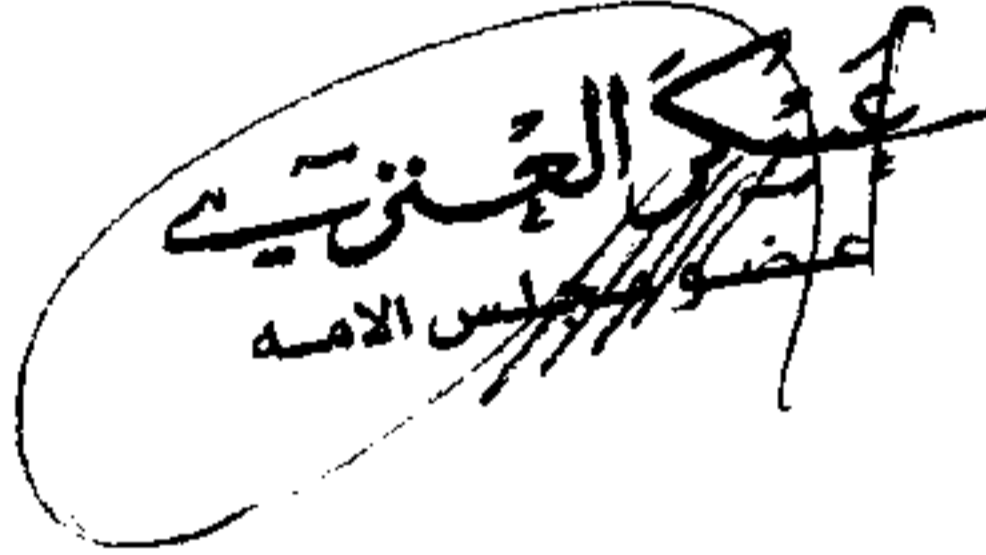 عسكر العنزي
عضو مجلس الامه